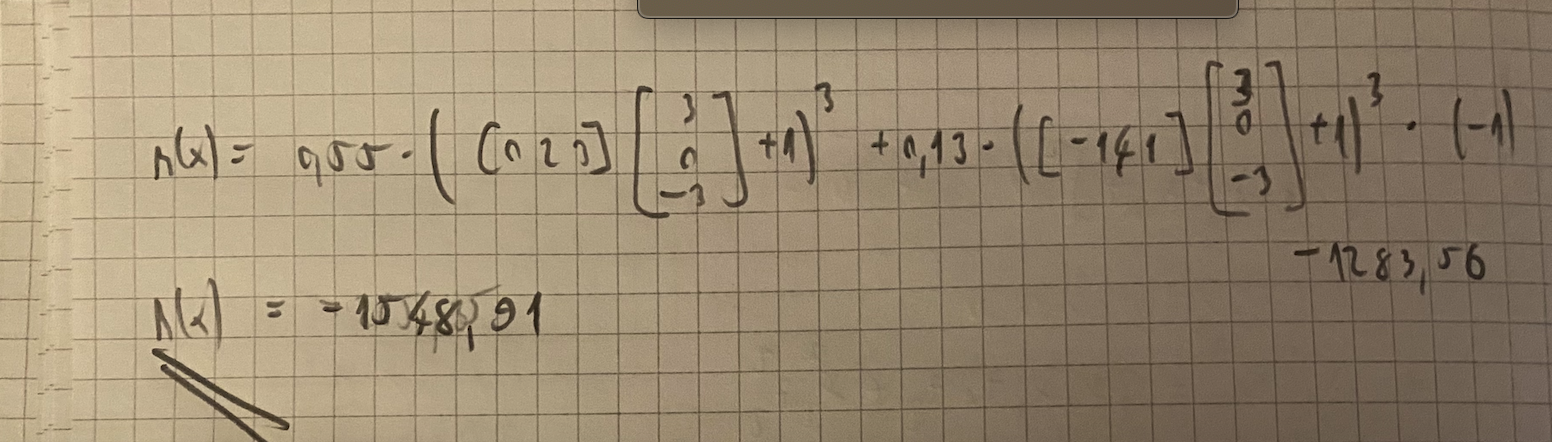 n(x) = 0,55 · ( [0 2 0] [3 0 -3] + 1 )³ + 0,13 · ( [-1 4 1] [3 0 -3] + 1 )³ · (-1)
-1283,56
n(x) = -1548,91